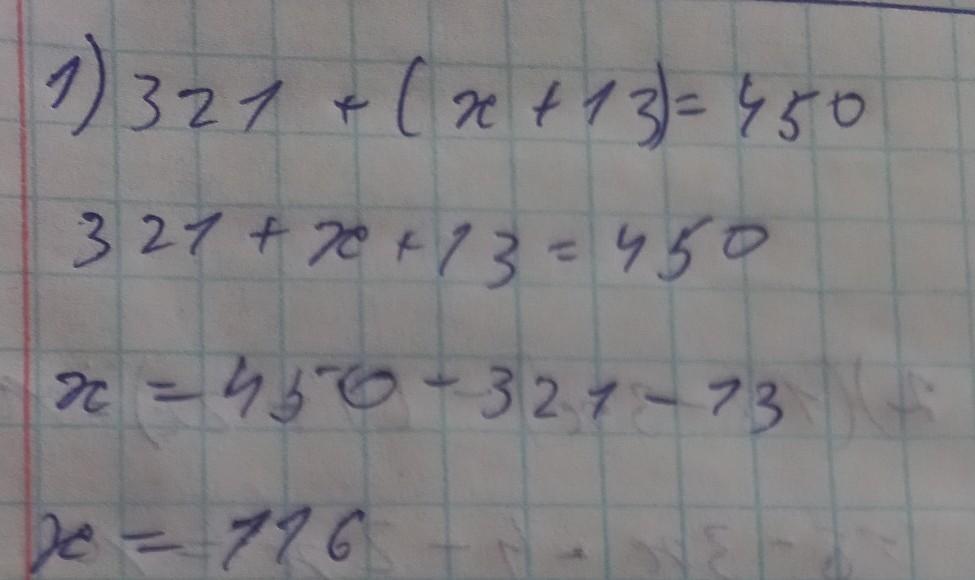 1) 321 + (x + 13) = 450
321 + x + 13 = 450
x = 450 - 321 - 13
x = 116